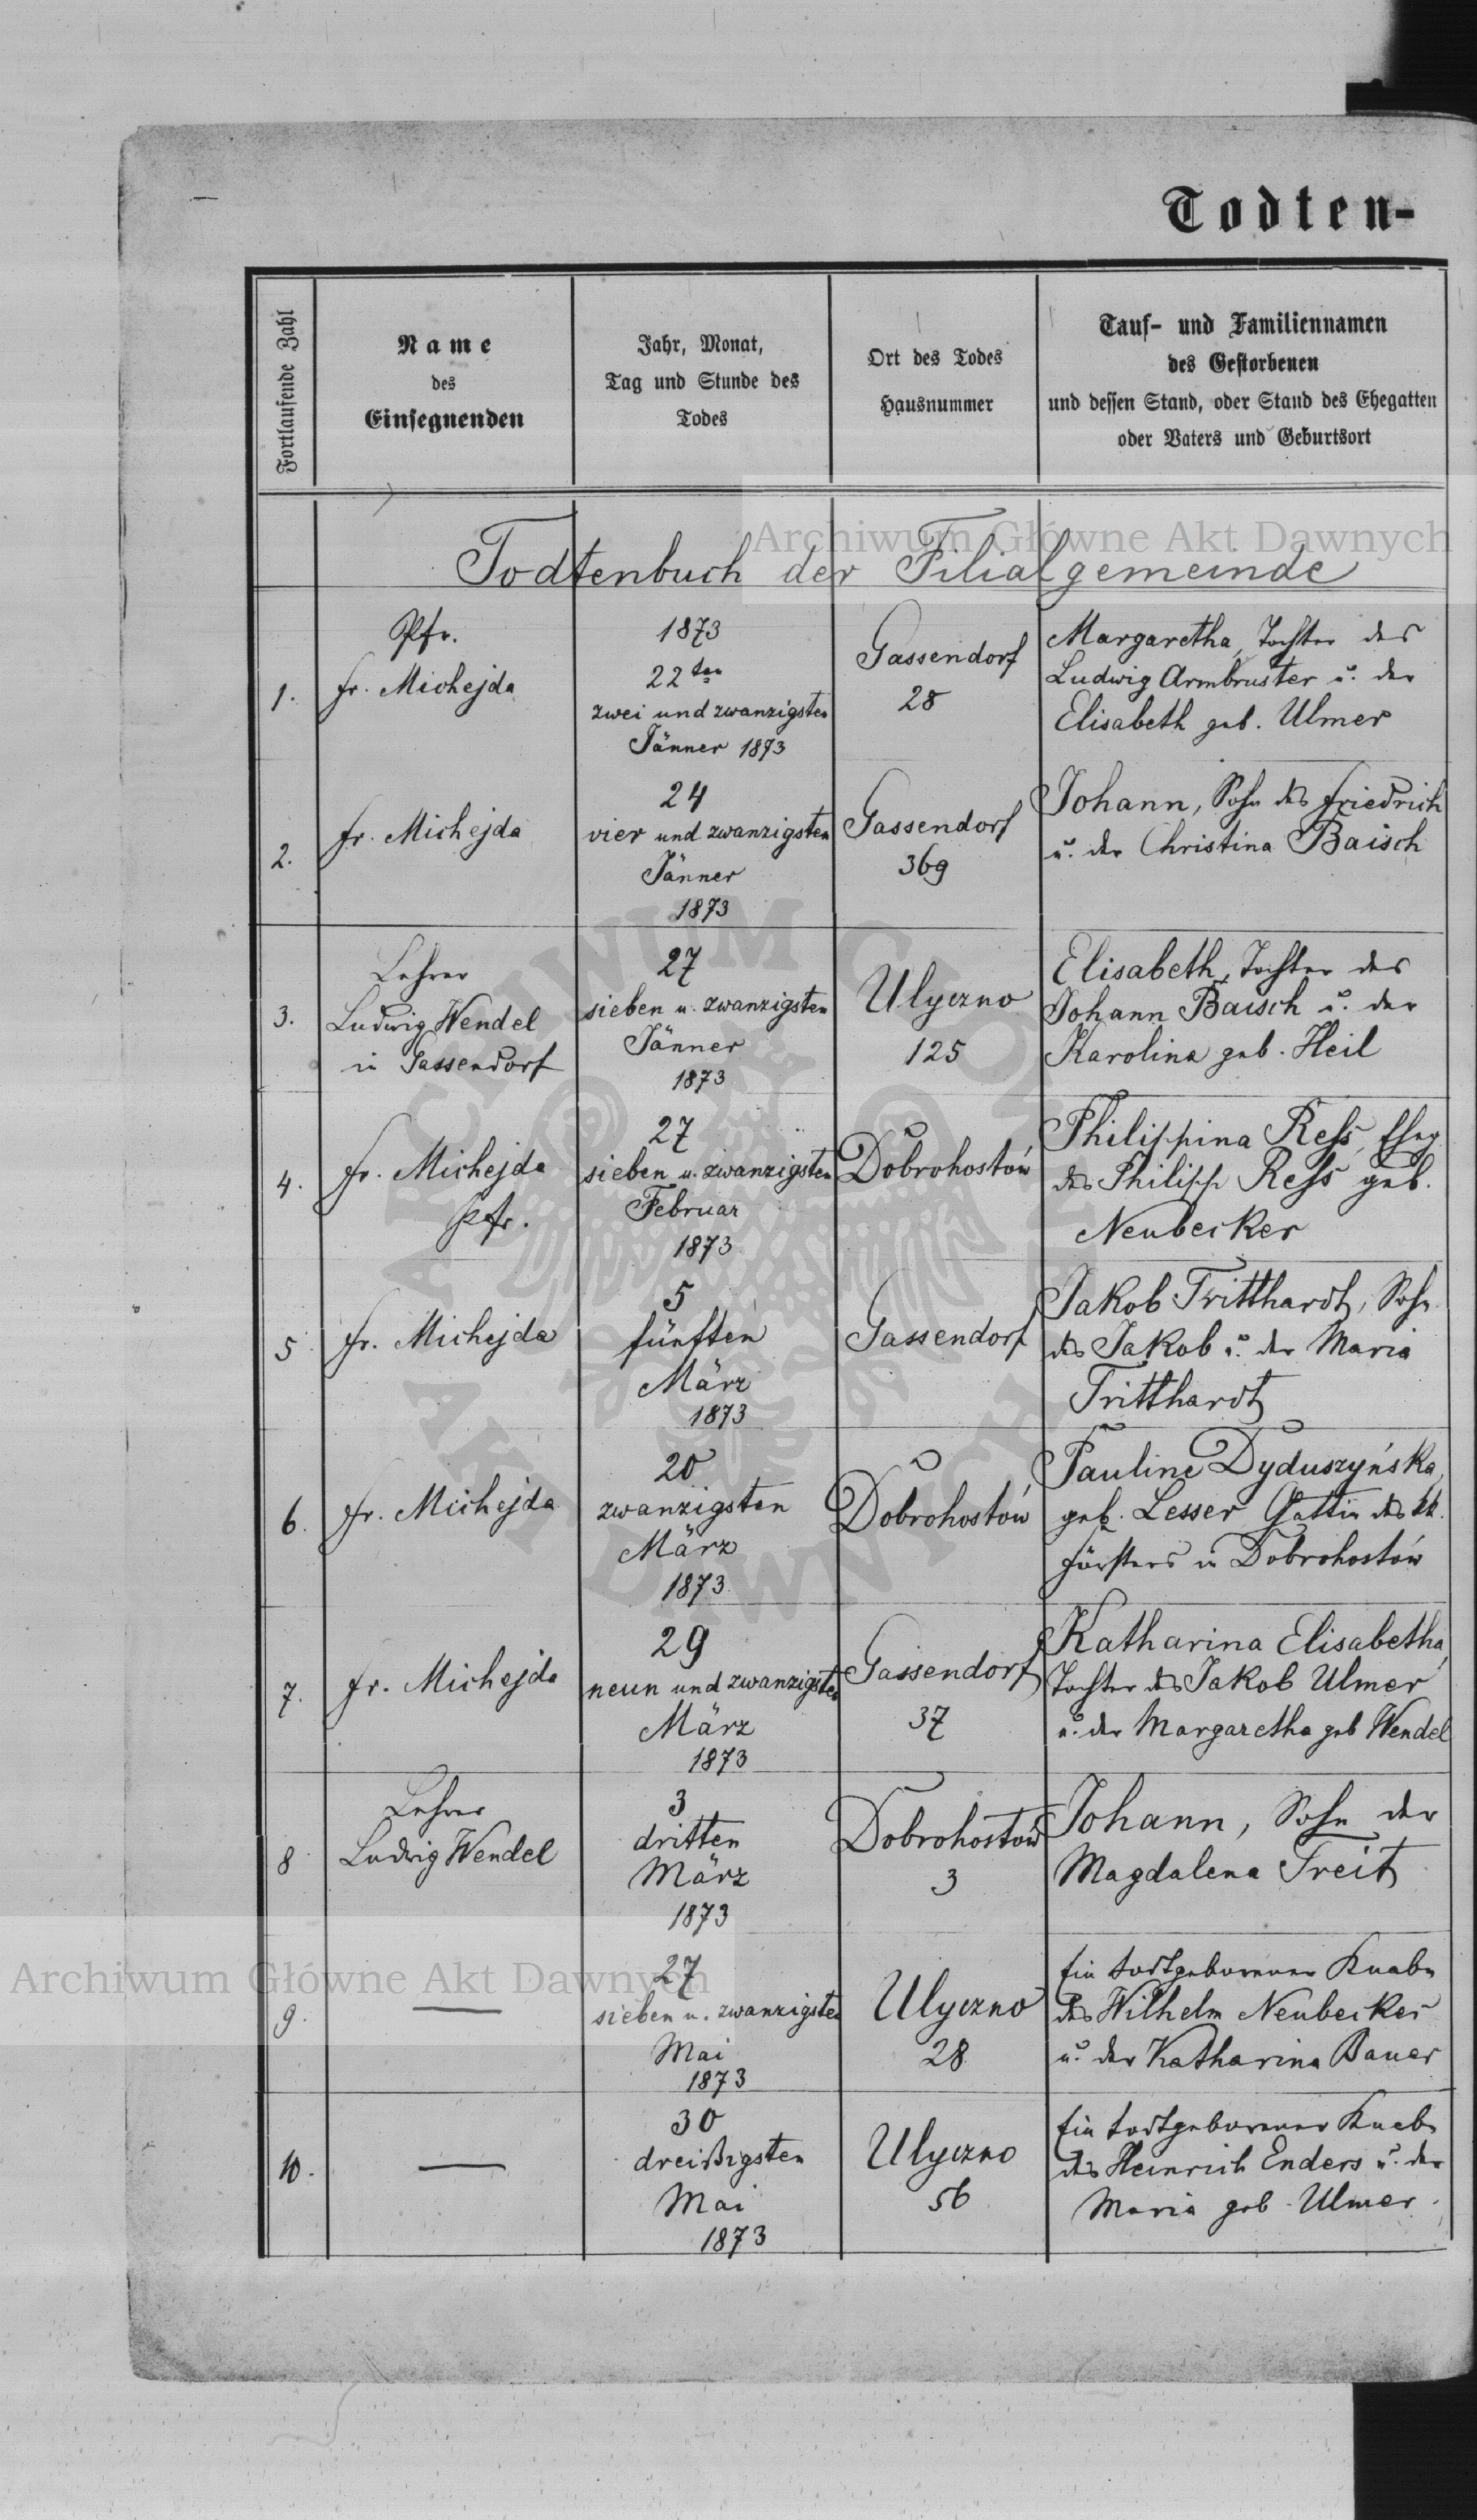 Todten-
Fortlaufende Zahl
Name
des
Einsegnenden
Jahr, Monat,
Tag und Stunde des
Todes
Ort des Todes
Hausnummer
Tauf- und Familiennamen
des Gestorbenen
und dessen Stand, oder Stand des Ehegatten
oder Vaters und Geburtsort
Archiwum Główne Akt Dawnych
Todtenbuch der Filialgemeinde
1.
Pfr.
Fr. Michejda
1873
22ten
zwei und zwanzigsten
Jänner 1873
Gassendorf
28
Margaretha, Tochter des
Ludwig Armbruster u. der
Elisabeth geb. Ulmer
2.
Fr. Michejda
24
vier und zwanzigsten
Jänner
1873
Gassendorf
369
Johann, Sohn des Friedrich
u. der Christina Baisch
3.
Lehrer
Ludwig Wendel
in Gassendorf
27
sieben u. zwanzigsten
Jänner
1873
Ulyczno
125
Elisabeth, Tochter des
Johann Baisch u. der
Karolina geb. Heil
4.
Fr. Michejda
Pfr.
27
sieben u. zwanzigsten
Februar
1873
Dobrohostów
Philippina Reß, Eheg
des Philipp Reß geb.
Neubecker
5
Fr. Michejda
5
fünften
März
1873
Gassendorf
Jakob Tritthardt, Sohn
des Jakob u. der Maria
Tritthardt
6.
Fr. Michejda
20
zwanzigsten
März
1873
Dobrohostów
Pauline Dyduszyńska,
geb. Lesser Gattin des kk.
Försters in Dobrohostów
7.
Fr. Michejda
29
neun und zwanzigsten
März
1873
Gassendorf
37
Katharina Elisabetha,
Tochter des Jakob Ulmer
u. der Margaretha geb Wendel
8
Lehrer
Ludwig Wendel
3
dritten
März
1873
Dobrohostów
3
Johann, Sohn der
Magdalena Treit
9.
27
sieben u. zwanzigsten
Mai
1873
Ulyczno
28
Ein todtgeborener Knabe
des Wilhelm Neubecker
u. der Katharina Bauer
Archiwum Główne Akt Dawnych
10.
30
dreißigsten
Mai
1873
Ulyczno
56
Ein todtgeborener Knabe
des Heinrich Enders u. der
Maria geb. Ulmer.
ARCHIWUM GŁÓWNE
AKT DAWNYCH